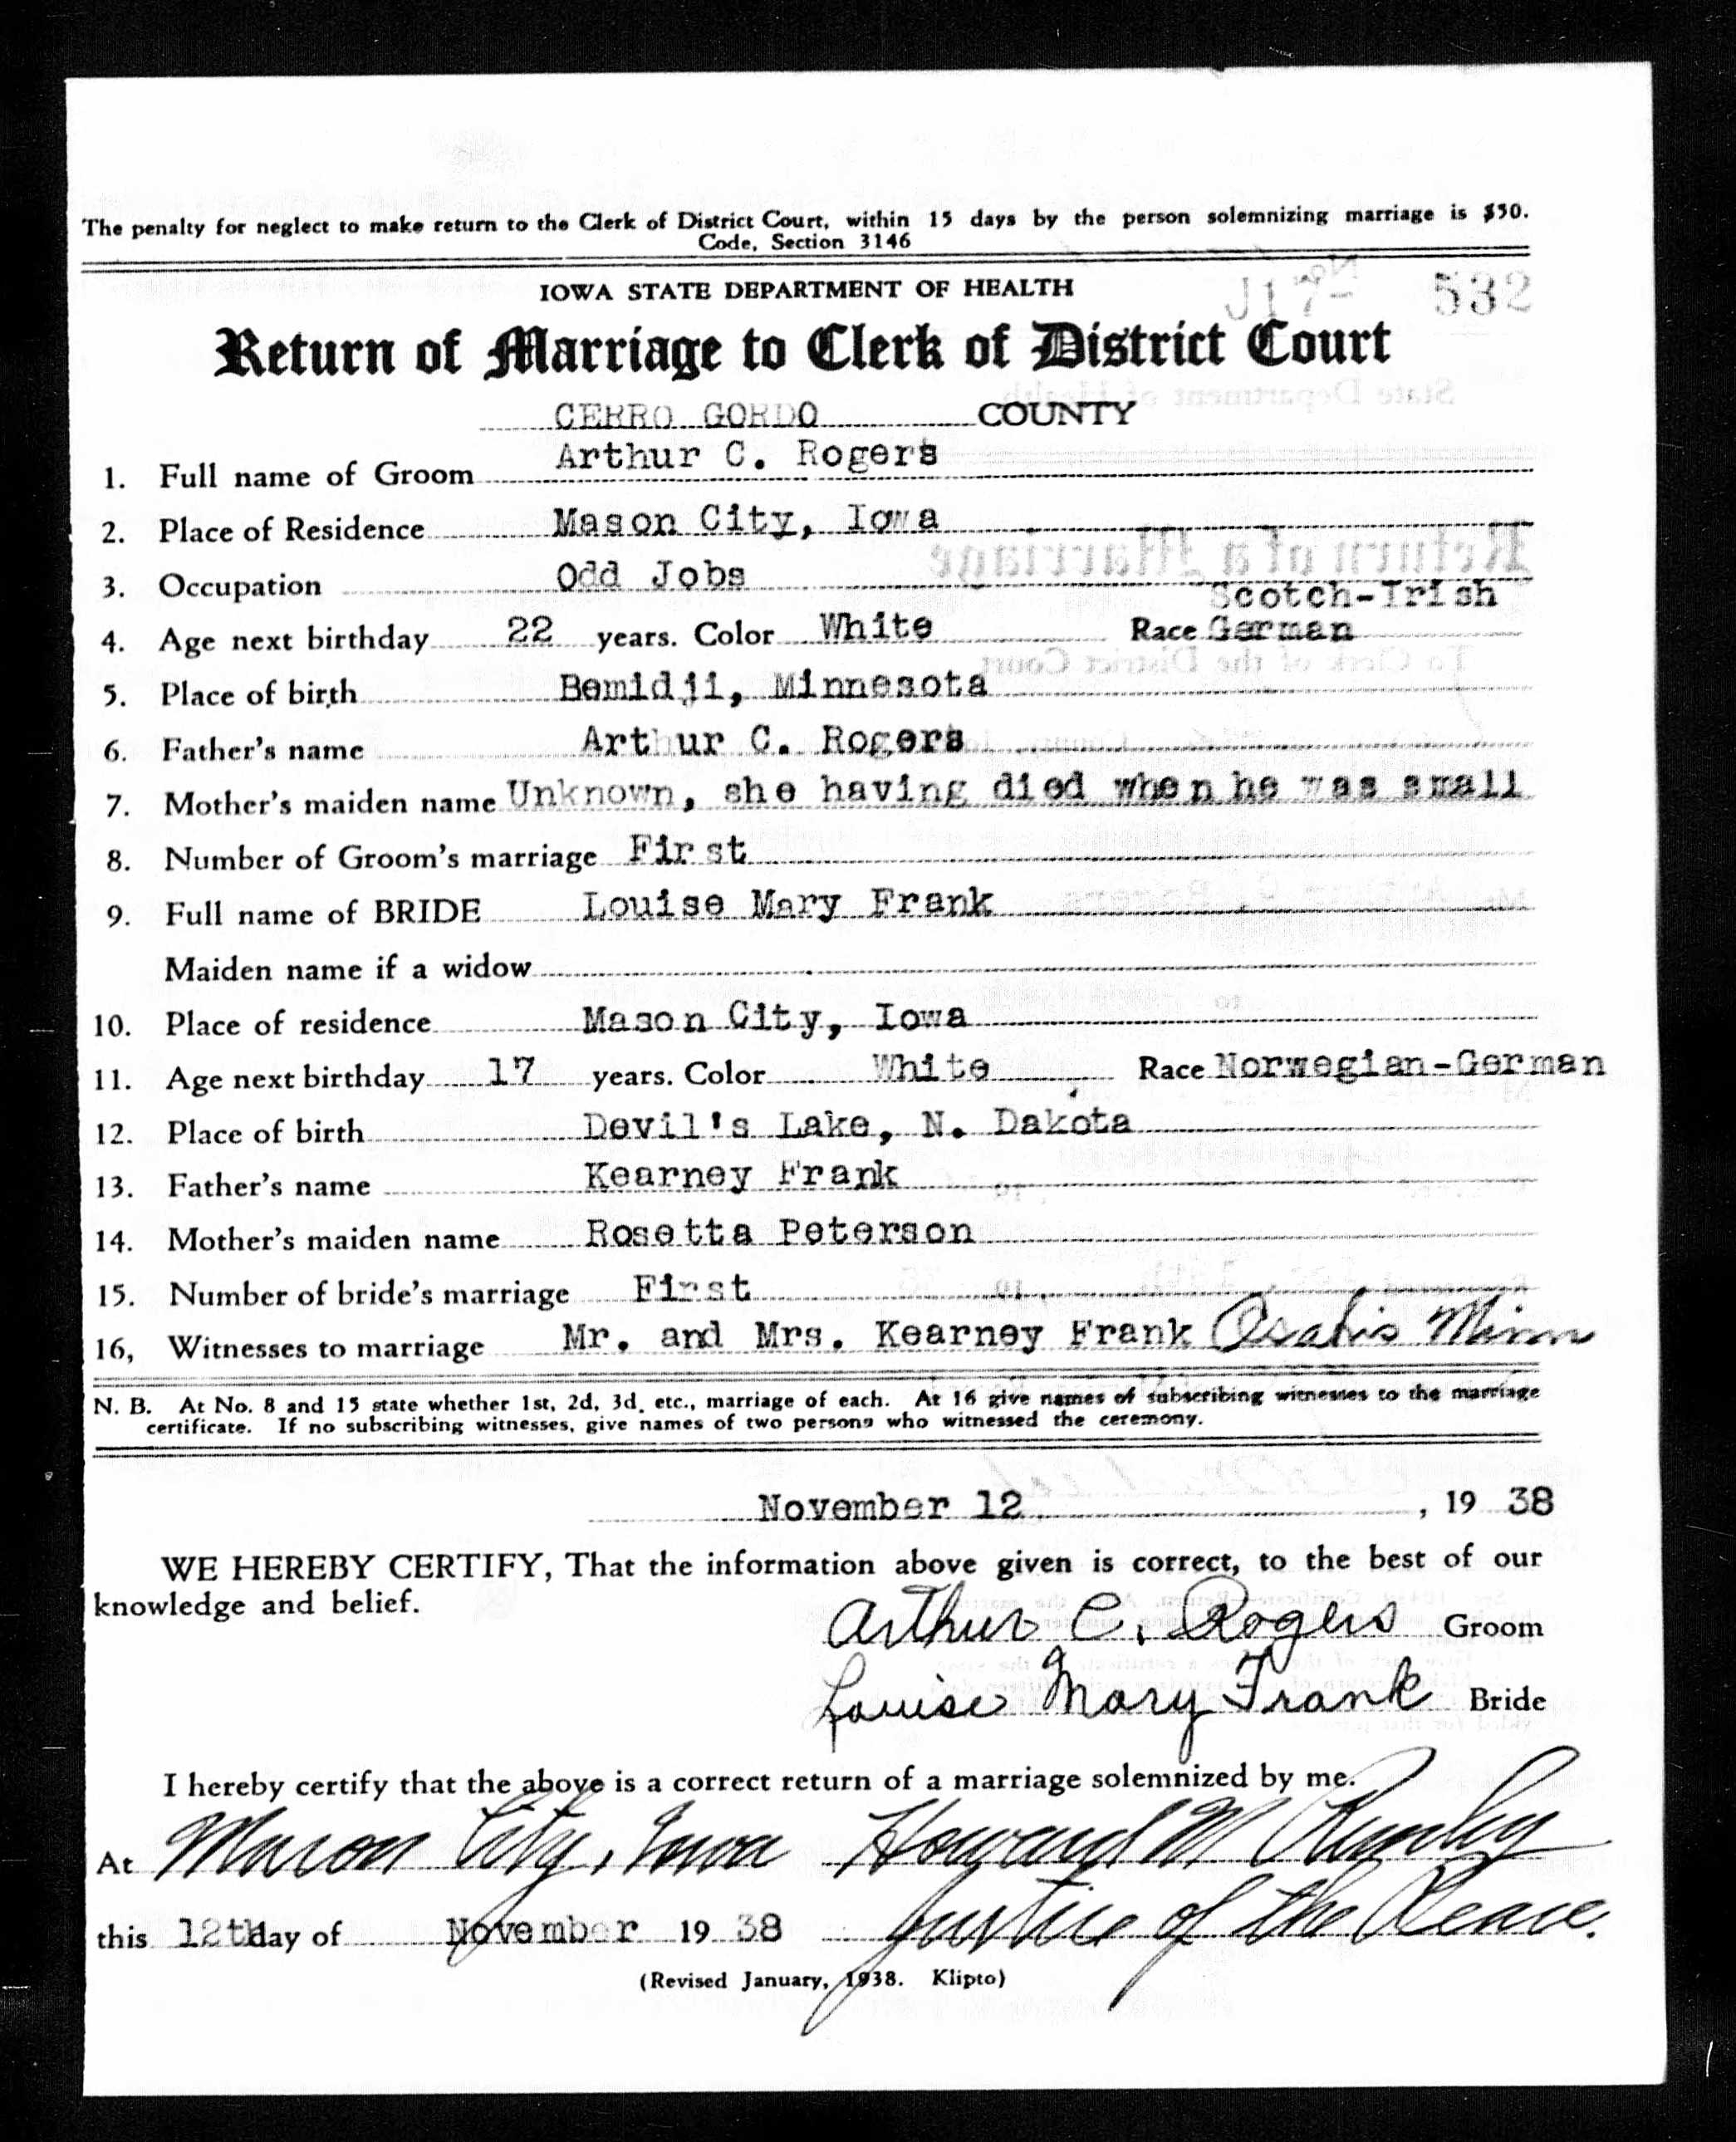 The penalty for neglect to make return to the Clerk of District Court, within 15 days by the person solemnizing marriage is $50.
Code, Section 3146
IOWA STATE DEPARTMENT OF HEALTH
J17- 532
Return of Marriage to Clerk of District Court
CERRO GORDO COUNTY
1. Full name of Groom Arthur C. Rogers
2. Place of Residence Mason City, Iowa
3. Occupation Odd Jobs
Scotch-Irish
4. Age next birthday 22 years. Color White Race German
5. Place of birth Bemidji, Minnesota
6. Father's name Arthur C. Rogers
7. Mother's maiden name Unknown, she having died when he was small
8. Number of Groom's marriage First
9. Full name of BRIDE Louise Mary Frank
Maiden name if a widow
10. Place of residence Mason City, Iowa
11. Age next birthday 17 years. Color White Race Norwegian-German
12. Place of birth Devil's Lake, N. Dakota
13. Father's name Kearney Frank
14. Mother's maiden name Rosetta Peterson
15. Number of bride's marriage First
16, Witnesses to marriage Mr. and Mrs. Kearney Frank Osakis Minn
N. B. At No. 8 and 15 state whether 1st, 2d, 3d, etc., marriage of each. At 16 give names of subscribing witnesses to the marriage
certificate. If no subscribing witnesses, give names of two persons who witnessed the ceremony.
November 12 , 19 38
WE HEREBY CERTIFY, That the information above given is correct, to the best of our
knowledge and belief.
Arthur C. Rogers Groom
Louise Mary Frank Bride
I hereby certify that the above is a correct return of a marriage solemnized by me.
At Mason City, Iowa Howard M
this 12th day of November 19 38 Justice of the Peace.
(Revised January, 1938. Klipto)